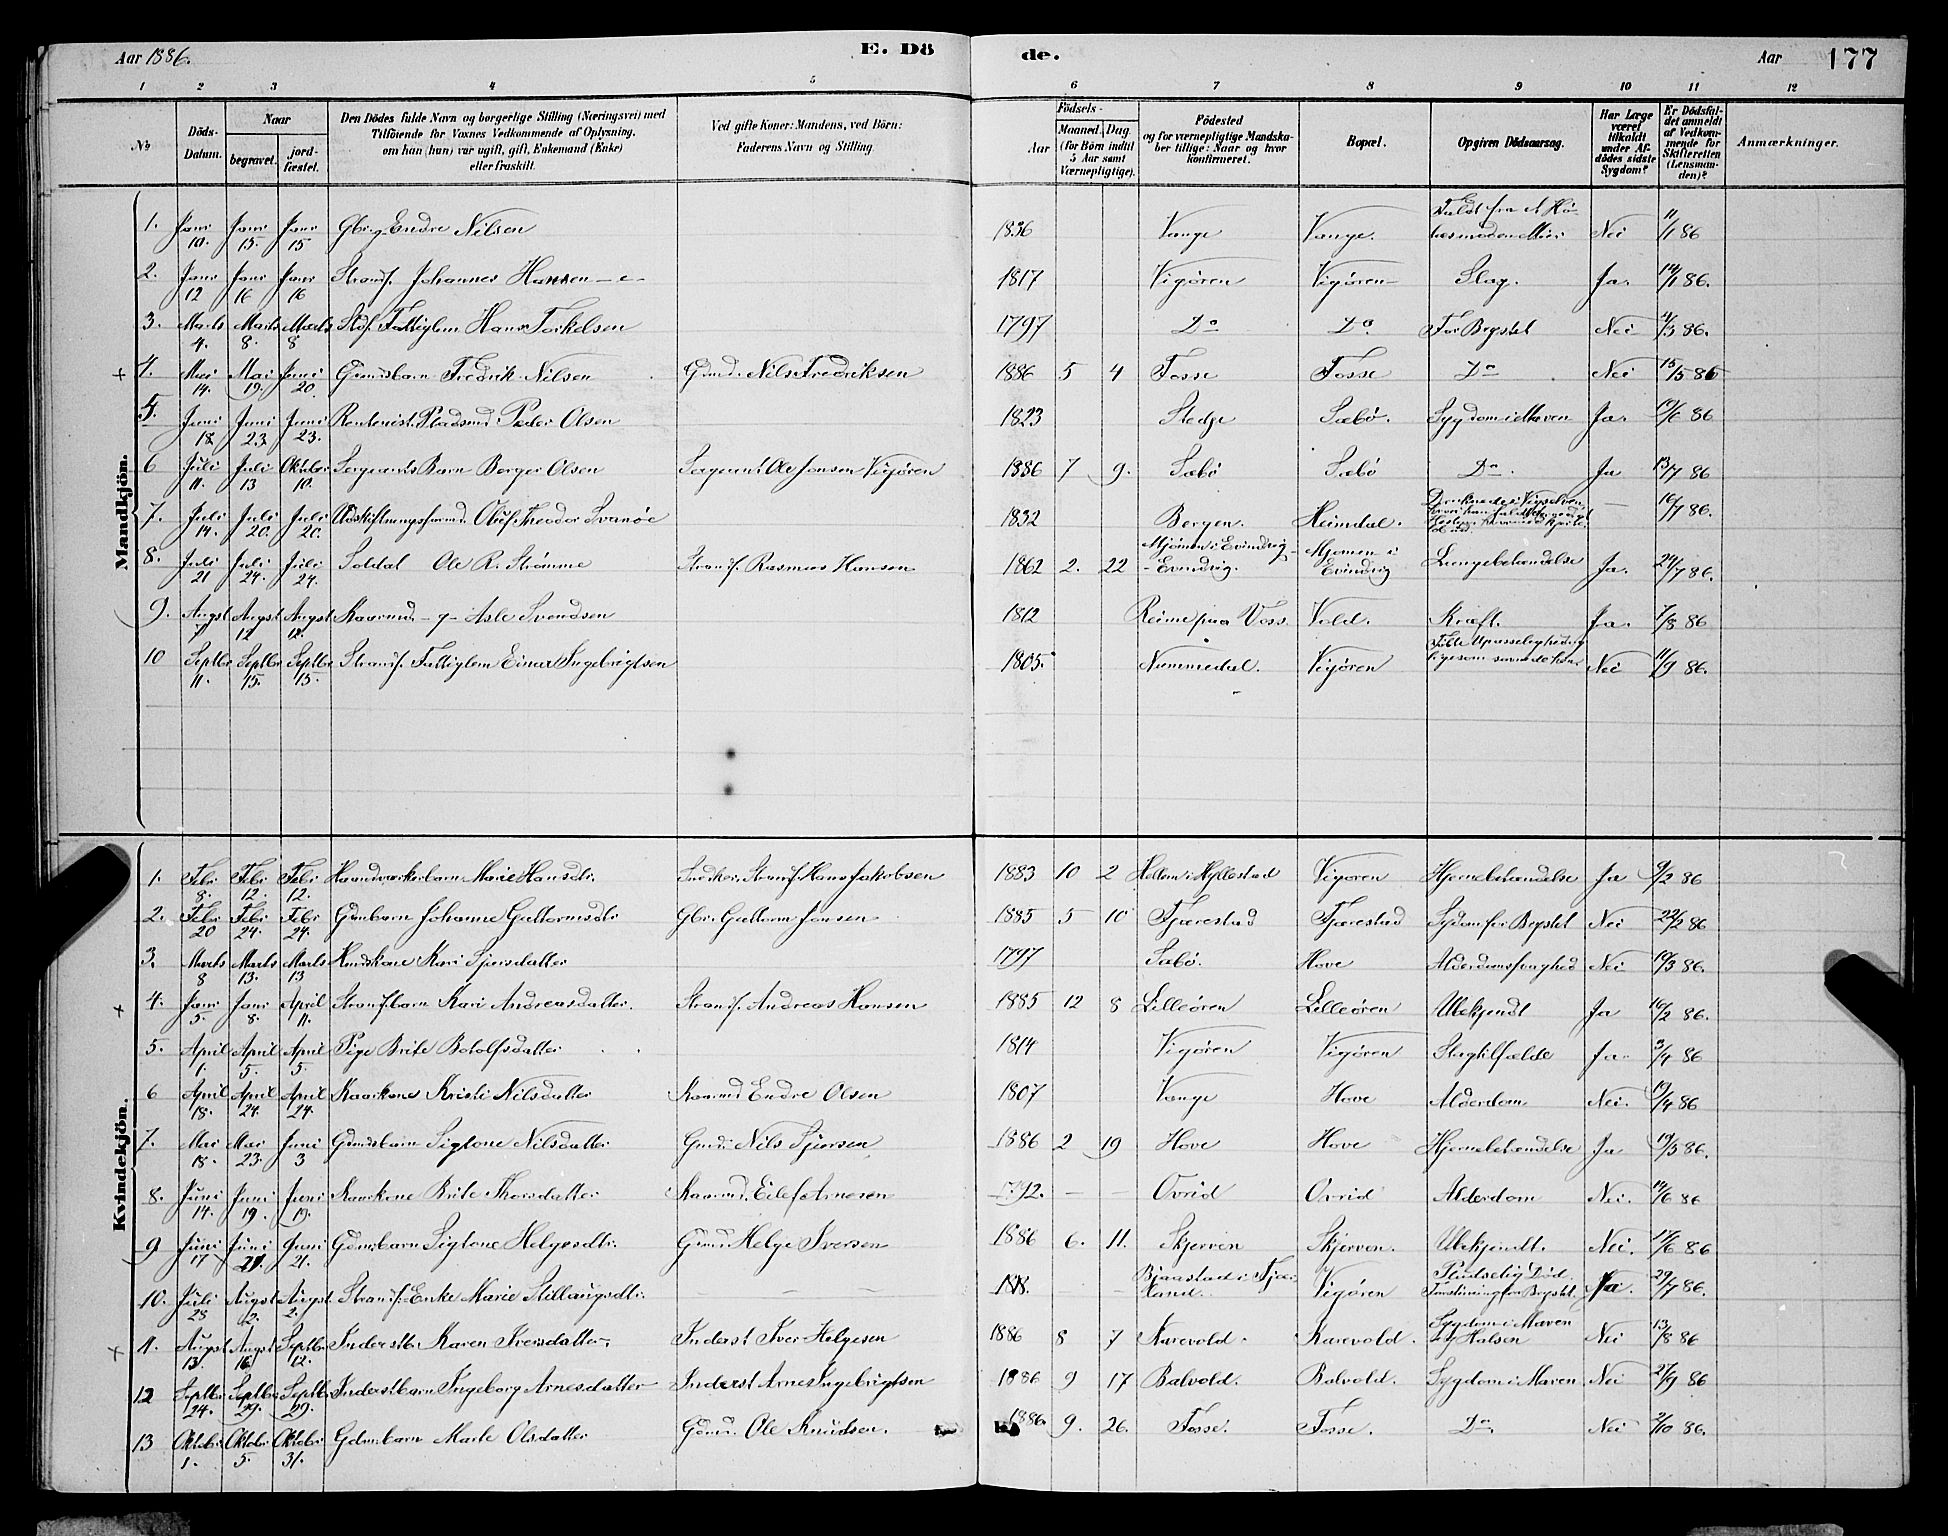 Aar 1886. E. Dö de. Aar 177
1 2 3 4 5 6 7 8 9 10 11 12
No Döds-Datum. Naar begravet. jordfæstet. Den Dödes fulde Navn og borgerlige Stilling (Næringsvei) med Tilföiende for Voxnes Vedkommende af Oplysning, om han (hun) var ugift, gift, Enkemand (Enke) eller fraskilt. Ved gifte Koner: Mandens, ved Börn: Faderens Navn og Stilling. Födsels- Aar Maaned. Dag. (for Börn indtil 5 Aar samt Værnepligtige). Födested og for værnepligtige Mandskaber tillige: Naar og hvor konfirmeret. Bopæl. Opgiven Dödsaarsag. Har Læge været tilkaldt under Afdödes sidste Sygdom? Er Dödsfaldet anmeldt af Vedkommende for Skifteretten (Lensmanden)? Anmærkninger.
Mandkjön.
1. Janr 10. Janr 15. Janr 15 Gbr. Endre Nilsen 1836 Vange Vange. Nei 11/1 86
2. Janr 12 Janr 16 Janr 16 Strands. Johannes Hansen 1817 Vigören Vigören Slag. Ja. 14/1 86.
3. Marts 4. Marts 8. Marts 8 Fattiglem Hans Torkelsen 1797 Do Do For Brystet Nei 4/3 86.
4. Mai 14. Mai 19. Juni 20. Gmdsbarn Fredrik Nilsen Gmd. Nils Fredriksen 1886 5 4 Fosse Fosse Do Nei 15/5 86
5. Juni 18 Juni 23 Juni 23. Pladsmd Peder Olsen 1823 Stedje Sæbö. Sygdom i Maven Ja. 19/6 86
6 Juli 11. Juli 13 Oktobr 10. Sergeants Barn Berger Olsen Sergeant Ole Jonsen Vigören 1886 7 9. Sæbö Sæbö Do. Ja 13/7 86
7. Juli 14. Juli 20. Juli 20. Udskiftningsformd. Oluf Theodor Svanöe 1832 Bergen. Heimdal. — 16/7 86.
8. Juli 21 Juli 24. Juli 24. Soldat Ole R. Strömme Strands. Rasmus Hansen 1862 2. 22 Mjömen i Evindvig - Evindvig. Mjomen i Evindvig Lungebetændelse Ja. 24/7 86.
9. Augst 7 Augst 12 Augst 12. Kaarmd. Asle Svendsen 1812 Reime paa Voss. Vold. Kræft. Ja. 7/8 86
10 Septbr 11. Septbr 15. Septbr 15. Strands. Fattiglem Einar Ingebrigtsen 1805. Nummedal. Vigören Nei 11/9 86.
Kvindekjön.
1. Febr 8. Febr 12 Febr 12. Haandværkerbarn Marie Hansdtr. Snedker, Strands. Hans Jakobsen 1883 10 2 Hyllestad Vigoren Hjernebetændelse Ja 9/2 86
2. Febr 20 Febr 24. Febr 24. Gdmbarn Johanne Guttormsdtr Gbr. Guttorm Jonsen 1885 5 10 Fjærestad Fjærestad Sygdom for Brystet Nei 22/2 86
3. Marts 8 Marts 13. Marts 13 Kari Sjursdatter 1797 Sæbö. Hove Alderdomssvaghed Nei 10/3 86.
4. Janr 5. Janr 8. April 11. Strands.barn Kari Andreasdatter. Strands. Andreas Hansen 1885 12 8 Lilleören Lilleören Ubekjendt Ja 16/2 86.
5. April 1. April 5. April 5. Pige Brite Botolfsdatter 1814 Vigören Vigören Slagtilfælde Ja 3/4 86
6 April 18. April 24. April 24. Kaarkone Kristi Nilsdatter Kaarmd Endre Olsen 1807 Vange Hove Alderdom Nei. 19/4 86
7. Mai 18. Mai 23. Juni 3 Gdmdsbarn Sigtone Nilsdatter Gmd. Nils Sjursen 1886 2 19 Hove Hove Hjernebetændelse Ja 19/5 86.
8. Juni 14. Juni 19. Juni 19. Kaarkone Brite Thorsdatter Kaarmd. Eilef Arnesen 1792. — — Ovrid Ovrid Alderdom Nei. 14/6 86
9 Juni 17 Juni 21. Juni 21. Gdmbarn Sigtone Helgesdtr. Gmd. Helge Iversen 1886 6. 11. Skjerven Skjerven. Ubekjendt. Nei. 17/6 86
10. Juli 28 Augst 2. Augst 2. Strands. Enke Marie Stillaugsdtr. — — Bjaastad i Fjærland. Vigören Pludselig Död. Nei. 29/7 86.
11. Augst 13. Augst 16 Septbr 12. Inderstb. Karen Iversdatter. Inderst Iver Helgesen 1886 8 7 Karevold. Karevold. Sygdom i Maven og Halsen Nei 13/8 86
12 Septbr 24. Septbr 29. Septbr 29. Inderstbarn Ingeborg Arnesdatter Inderst Arne Ingebrigtsen 1886 9 17 Balvold. Balvold. Sygdom i Maven Nei 27/9 86
13 Oktobr 1. Oktobr 5 Oktobr 31. Gdmbarn Marte Olsdatter Gdmd. Ole Knudsen. 1886. 9. 26. Fosse. Fosse. Do. Nei 2/10 86.